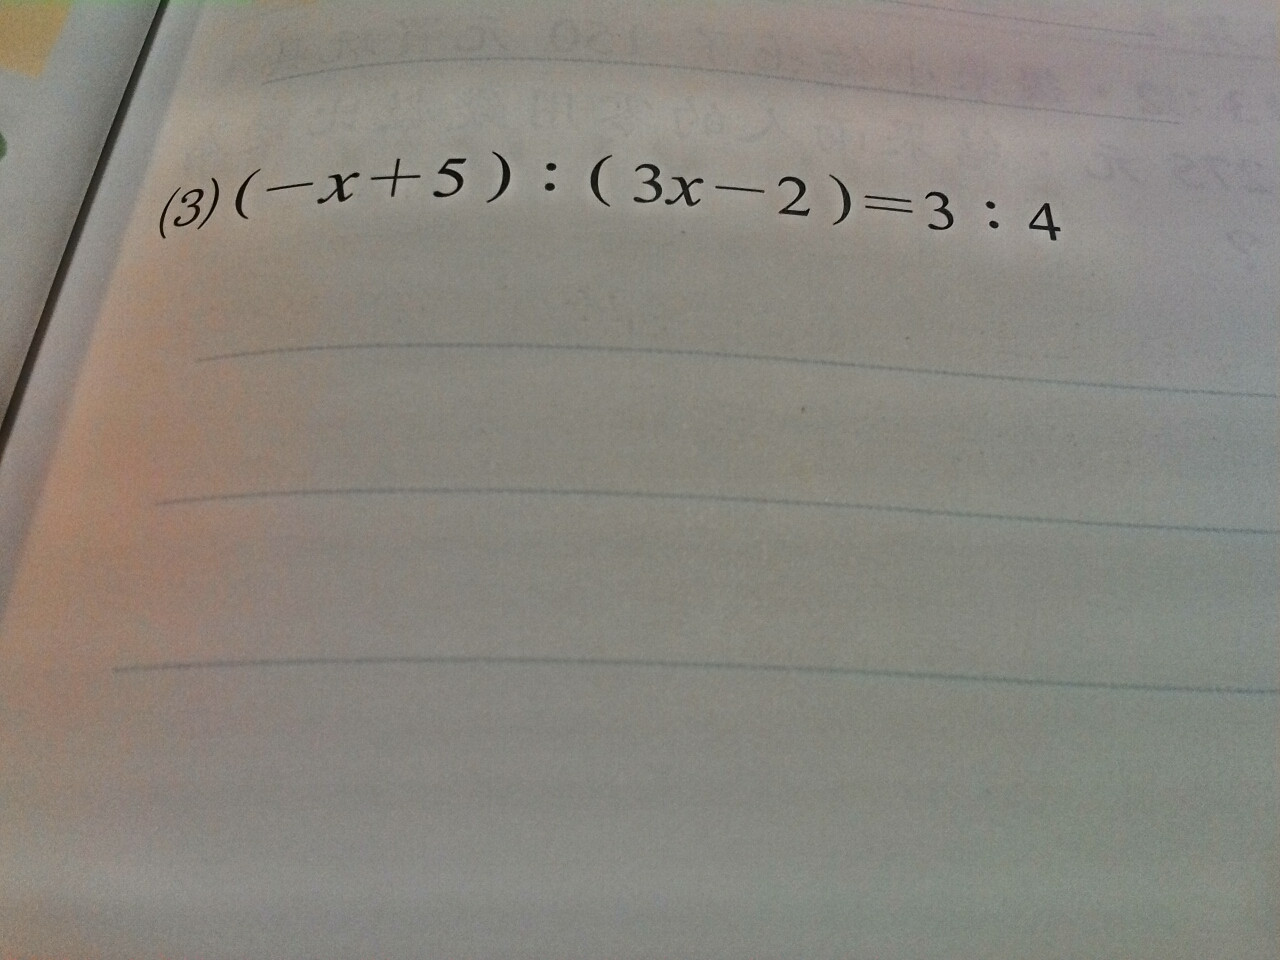 (3) (−x+5) : (3x−2)=3 : 4